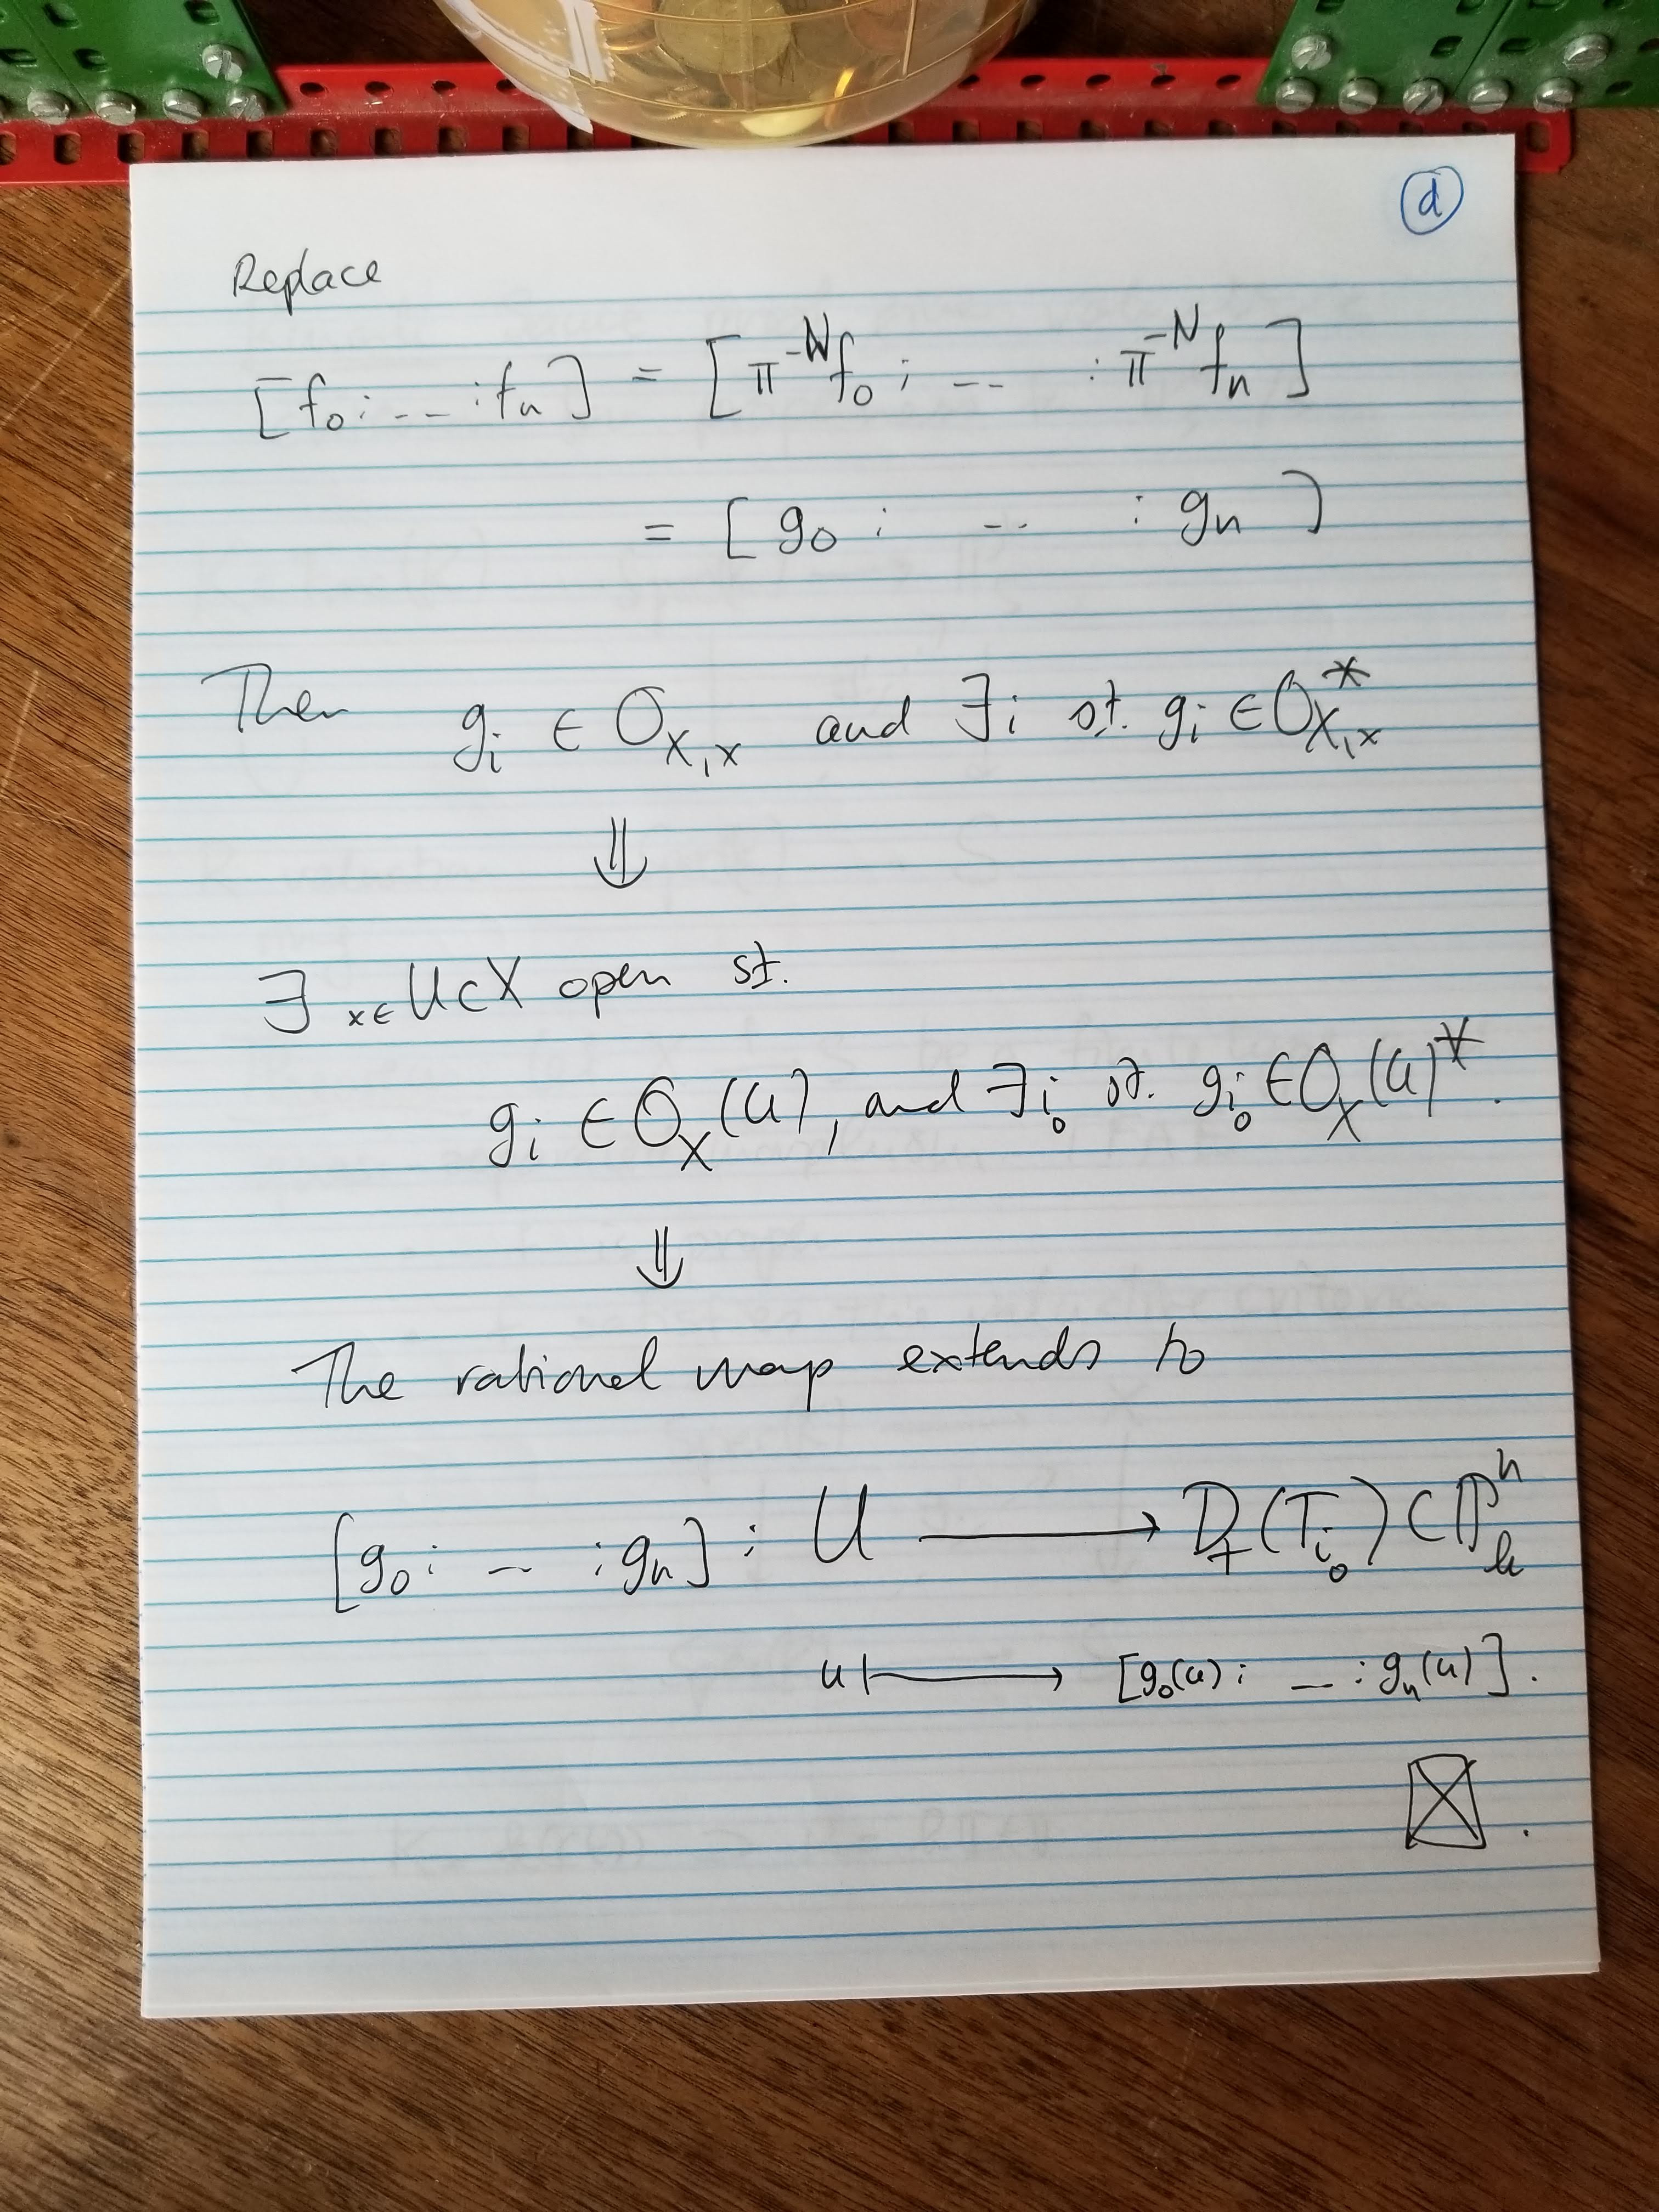 d
Replace
[f₀ : -- : fₙ] = [π⁻ᴺf₀ : -- : π⁻ᴺfₙ]
= [g₀ : -- : gₙ]
Then gᵢ ∈ O_{X,x} and ∃ i st. gᵢ ∈ O*_{X,x}
⇓
∃ x∈ U⊂X open st.
gᵢ ∈ O_X(U), and ∃ i₀ st. g_{i₀} ∈ O_X(U)*.
⇓
The rational map extends to
[g₀ : -- : gₙ] : U ⟶ D₊(T_{i₀}) ⊂ ℙⁿ_k
u ⟼ [g₀(u) : -- : gₙ(u)].